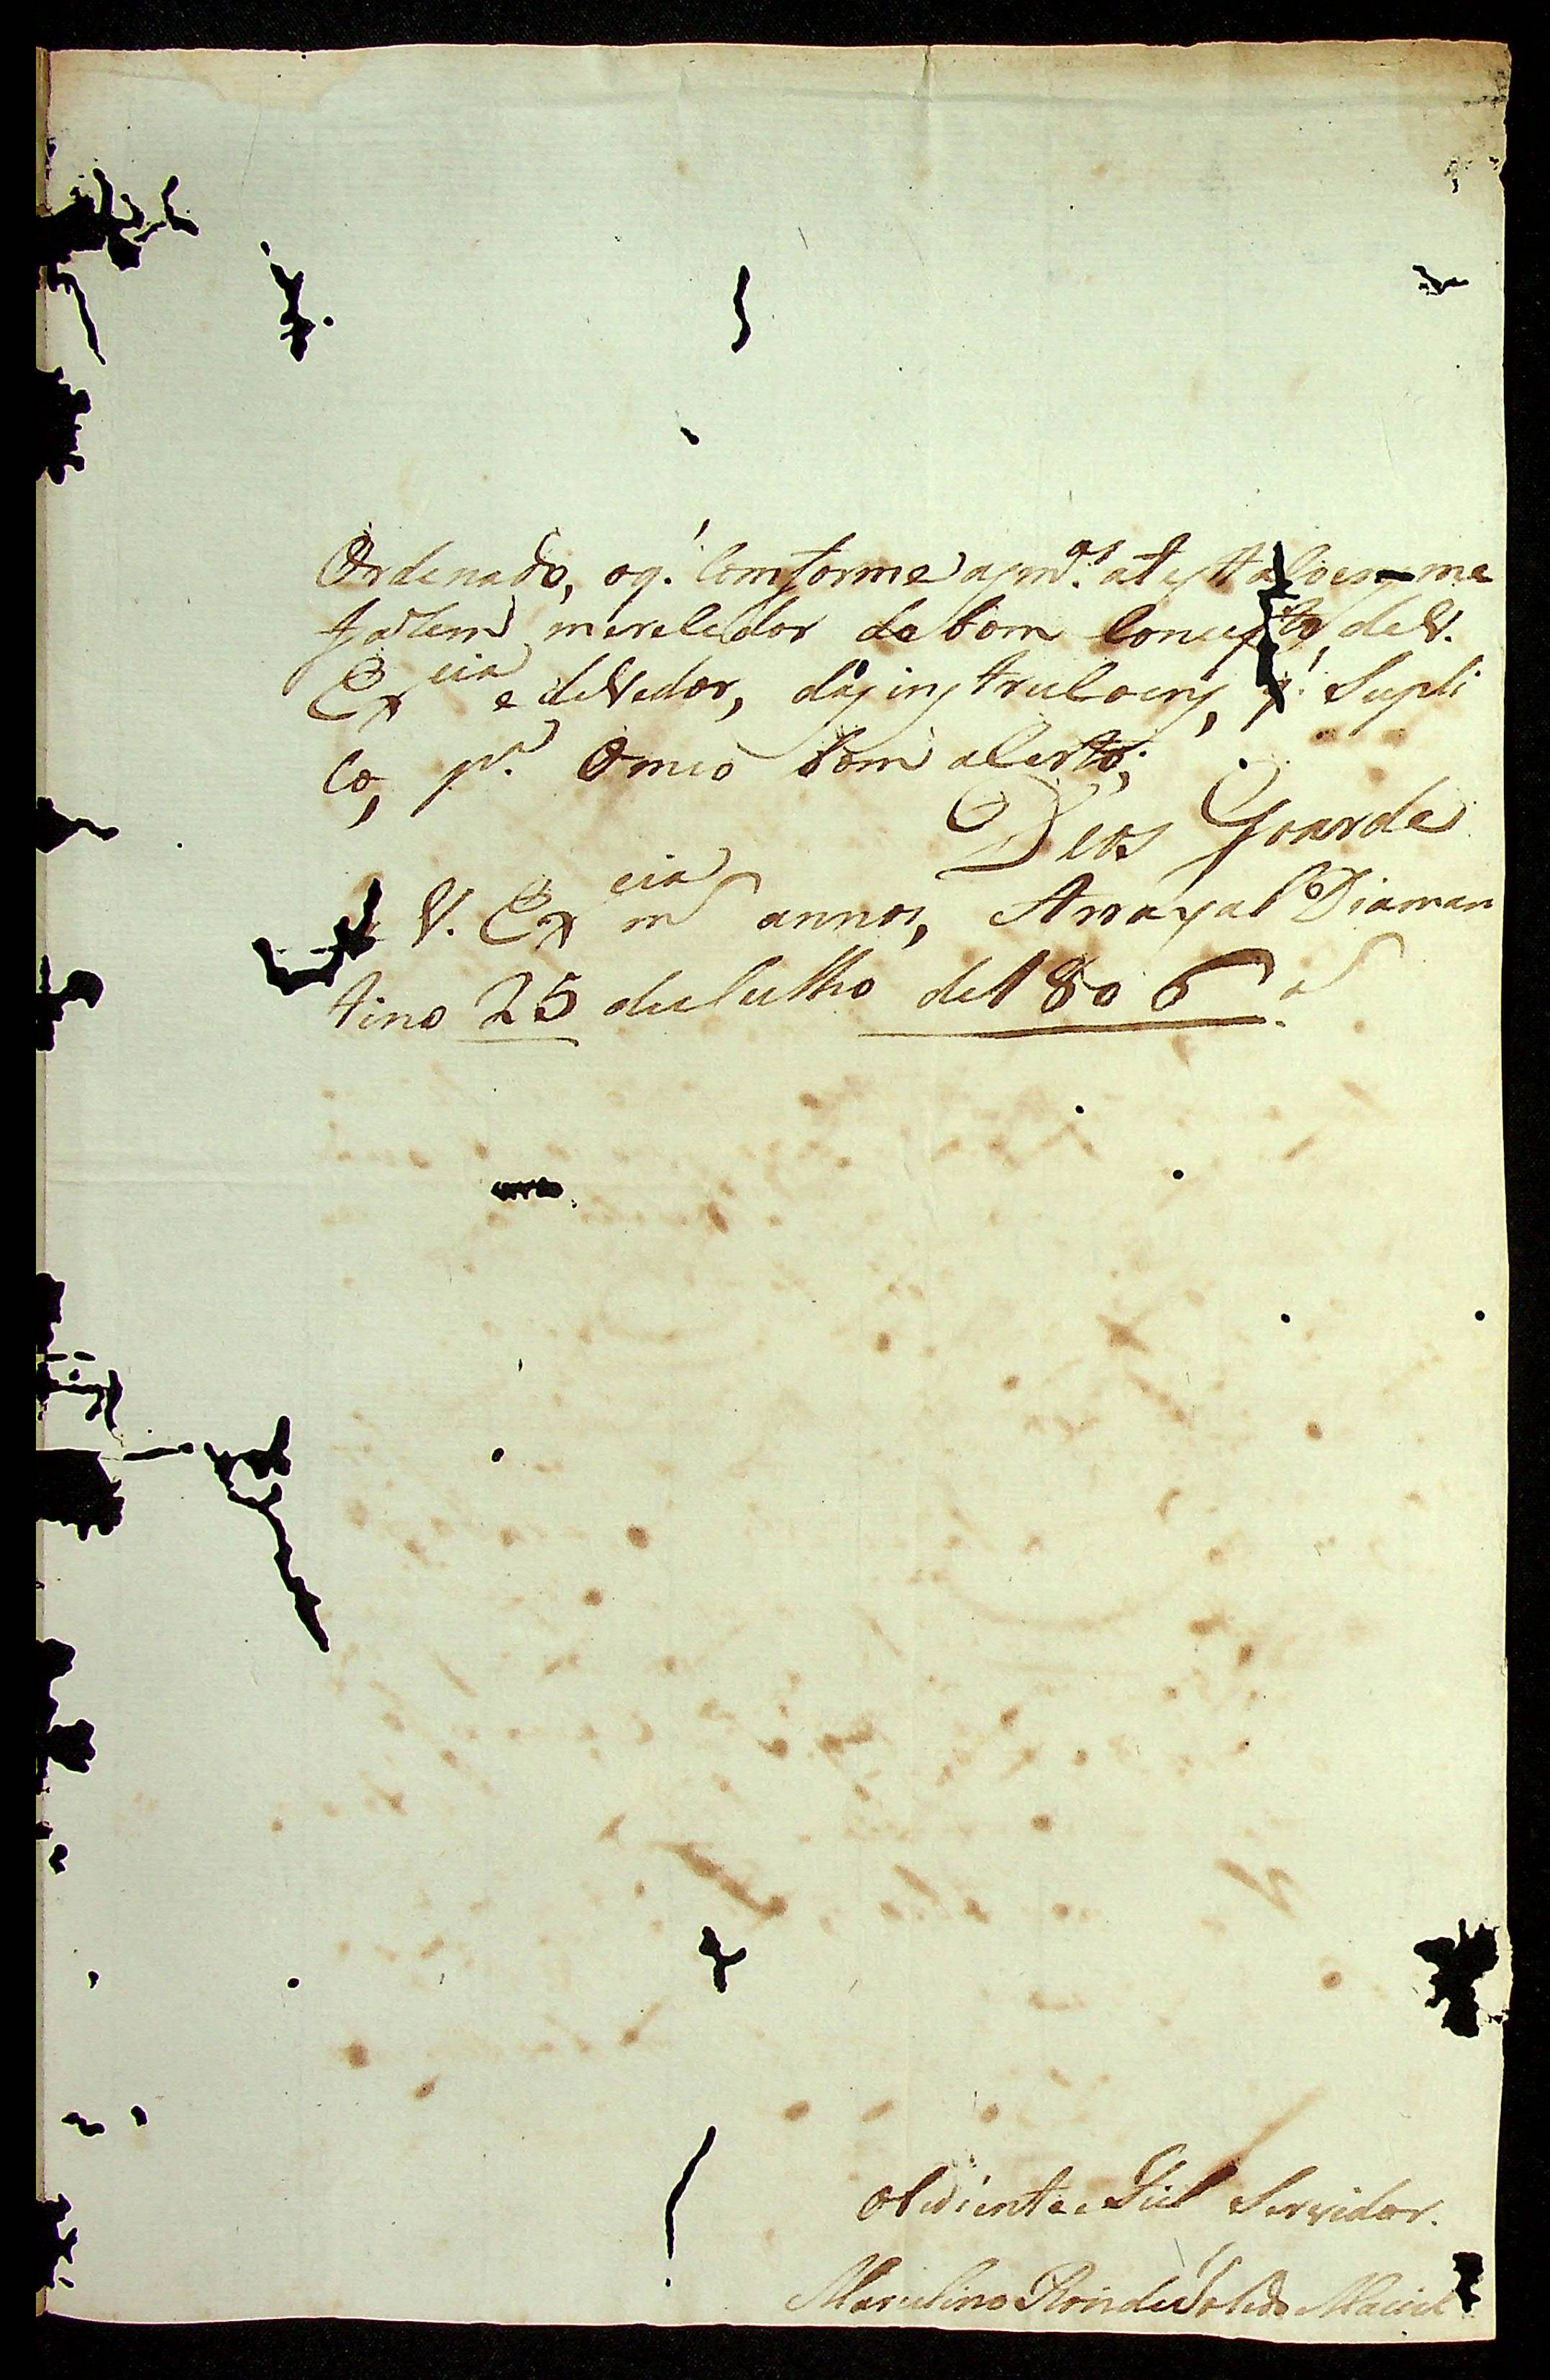 Ordenado, oq.' Comforme apm.as atestaçoens me
fazem merecedor do bom conceito de V.
Ex.cia e deVedor, das instrucoens, q.' Supli
co, p.a O meo bom acerto;
Deos Goarde
V. Ex.cia m.s annos, Arrayal Diaman
tino 25 de Julho de 1806.
obdiente e Fiel Servidor.
Marcelino Roiz de Toledo Maciel